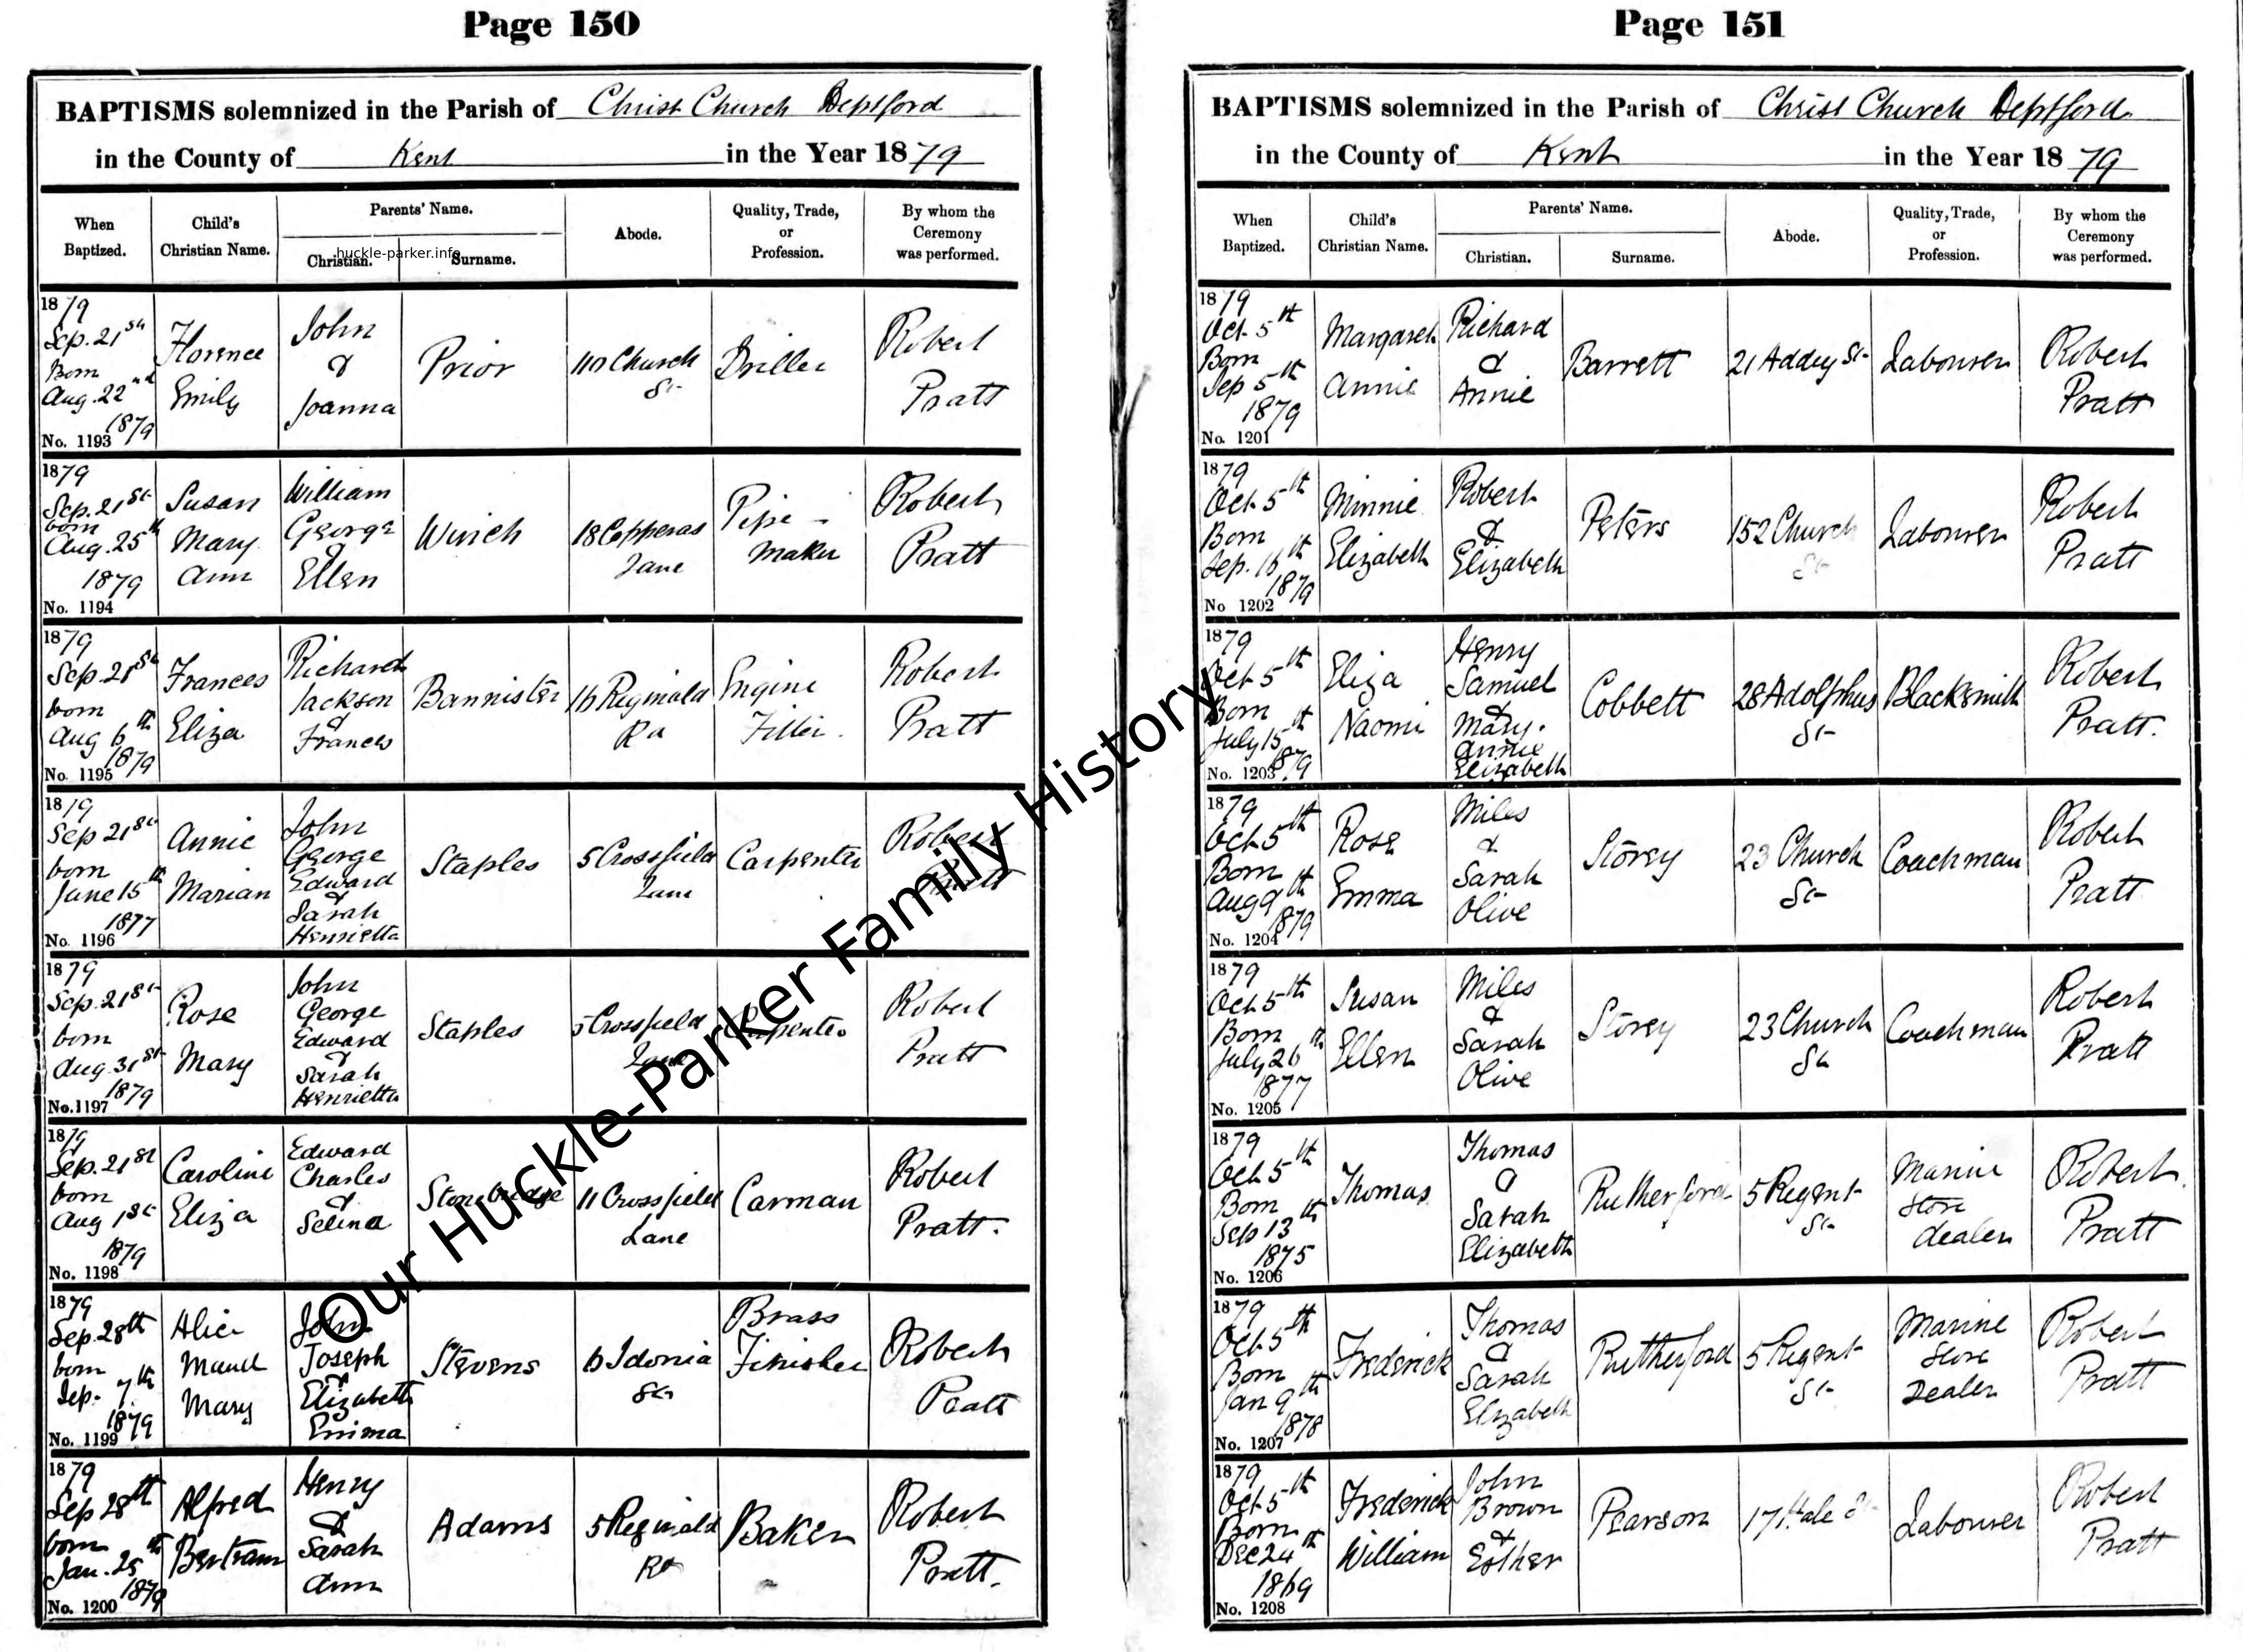 Page 150
BAPTISMS solemnized in the Parish of Christ Church Deptford
in the County of Kent in the Year 1879
When Baptized. Child's Christian Name. Parents' Name. Christian. Surname. Abode. Quality, Trade, or Profession. By whom the Ceremony was performed.
huckle-parker.info
1879 Sep. 21st Born Aug. 22nd 1879 No. 1193 Florence Emily John & Joanna Prior 110 Church St Driller Robert Pratt
1879 Sep. 21st born Aug. 25th 1879 No. 1194 Susan Mary Ann William George & Ellen Winch 18 Copperas Lane Pipe-maker Robert Pratt
1879 Sep. 21st born Aug 6th 1879 No. 1195 Frances Eliza Richard Jackson & Frances Bannister 16 Reginald Rd Engine Fitter. Robert Pratt
1879 Sep 21st born June 15th 1877 No. 1196 Annie Marian John George Edward & Sarah Henrietta Staples 5 Crossfield Lane Carpenter Robert Pratt
1879 Sep. 21st born Aug. 31st 1879 No. 1197 Rose Mary John George Edward & Sarah Henrietta Staples 5 Crossfield Lane Carpenter Robert Pratt
1879 Sep. 21st born Aug 1st 1879 No. 1198 Caroline Eliza Edward Charles & Selina Stonebridge 11 Crossfield Lane Carman Robert Pratt.
1879 Sep. 28th born Sep. 7th 1879 No. 1199 Alice Maud Mary John Joseph & Elizabeth Emma Stevens 6 Idonia St Brass Finisher Robert Pratt
1879 Sep 28th born Jan. 25th 1879 No. 1200 Alfred Bertram Henry & Sarah Ann Adams 5 Reginald Rd Baker Robert Pratt.
Our Huckle-Parker Family History
Page 151
BAPTISMS solemnized in the Parish of Christ Church Deptford
in the County of Kent in the Year 1879
When Baptized. Child's Christian Name. Parents' Name. Christian. Surname. Abode. Quality, Trade, or Profession. By whom the Ceremony was performed.
1879 Oct. 5th Born Sep 5th 1879 No. 1201 Margaret Annie Richard & Annie Barrett 21 Addey St Labourer Robert Pratt
1879 Oct. 5th Born Sep. 16th 1879 No 1202 Minnie Elizabeth Robert & Elizabeth Peters 152 Church St Labourer Robert Pratt
1879 Oct 5th Born July 15th 1879 No. 1203 Eliza Naomi Henry Samuel & Mary Annie Elizabeth Cobbett 28 Adolphus St Blacksmith Robert Pratt.
1879 Oct 5th Born Aug 9th 1879 No. 1204 Rose Emma Miles & Sarah Olive Storey 23 Church St Coachman Robert Pratt
1879 Oct 5th Born July 26th 1877 No. 1205 Susan Ellen Miles & Sarah Olive Storey 23 Church St Coachman Robert Pratt
1879 Oct 5th Born Sep 13th 1875 No. 1206 Thomas Thomas & Sarah Elizabeth Rutherford 5 Regent St Marine Store dealer Robert Pratt
1879 Oct 5th Born Jan 9th 1878 No. 1207 Frederick Thomas & Sarah Elizabeth Rutherford 5 Regent St Marine Store Dealer Robert Pratt
1879 Oct 5th Born Dec 24th 1869 No. 1208 Frederick William John Brown & Esther Pearson 17 Hale St Labourer Robert Pratt